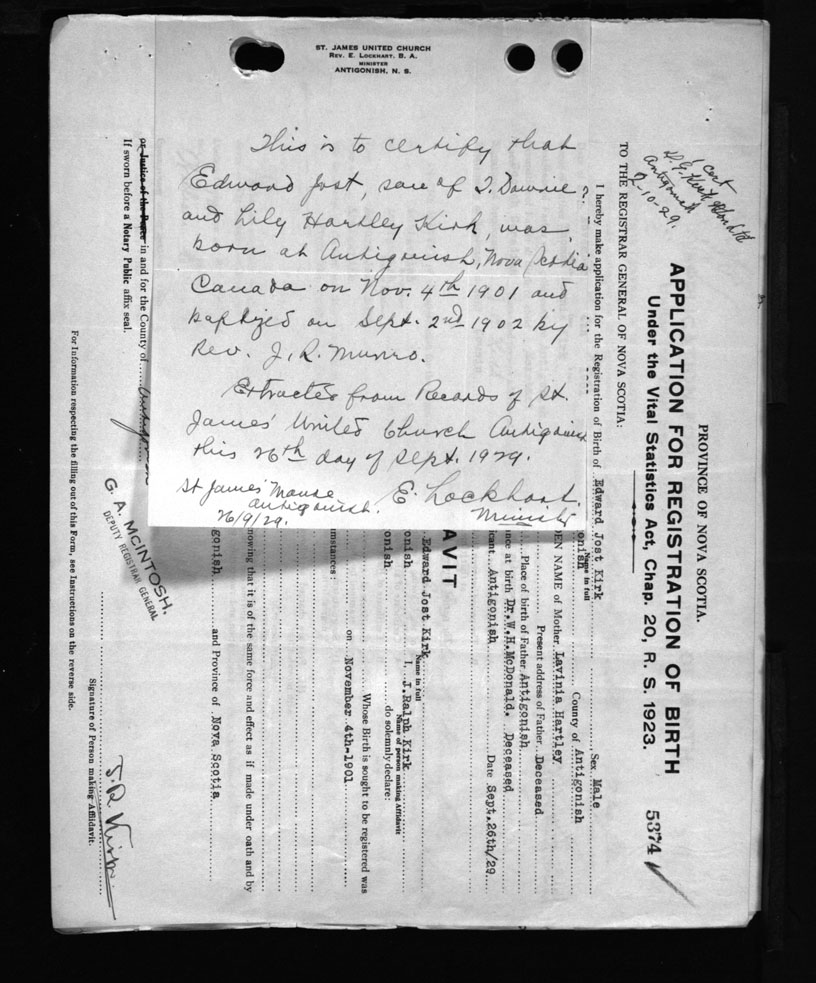 ST. JAMES UNITED CHURCH
REV. E. LOCKHART, B. A.
MINISTER
ANTIGONISH, N. S.
This is to certify that
Edward Jost, son of T. Downie
and Lily Hartley Kirk, was
born at Antigonish, Nova Scotia
Canada on Nov. 4th 1901 and
baptized on Sept. 2nd 1902 by
Rev. J. R. Munro.
Extracted from Records of St.
James' United Church Antigonish
this 26th day of Sept. 1929.
St James' Manse
Antigonish.
26/9/29.
E. Lockhart.
Minister
1 Cert
Antigonish
2-10-29.
PROVINCE OF NOVA SCOTIA.
APPLICATION FOR REGISTRATION OF BIRTH
Under the Vital Statistics Act, Chap. 20, R. S. 1923.
5374
TO THE REGISTRAR GENERAL OF NOVA SCOTIA:
I hereby make application for the Registration of Birth of Edward Jost Kirk Sex Male
Name in full
onish County of Antigonish
EN NAME of Mother Lavinia Hartley
Present address of Father Deceased
Place of birth of Father Antigonish
nce at birth Dr. W. H. McDonald. Deceased
icant Antigonish Date Sept. 26th/29
AVIT
Edward Jost Kirk
Name in full
onish I, J. Ralph Kirk
Name of person making Affidavit
onish do solemnly declare:
Whose Birth is sought to be registered was
on November 4th-1901
mstances:
nowing that it is of the same force and effect as if made under oath and by
gonish and Province of Nova Scotia
G. A. McINTOSH,
DEPUTY REGISTRAR GENERAL
or Justice of the Peace in and for the County of Antigonish
If sworn before a Notary Public affix seal.
J. R. Kirk
Signature of Person making Affidavit.
For Information respecting the filling out of this Form, see Instructions on the reverse side.